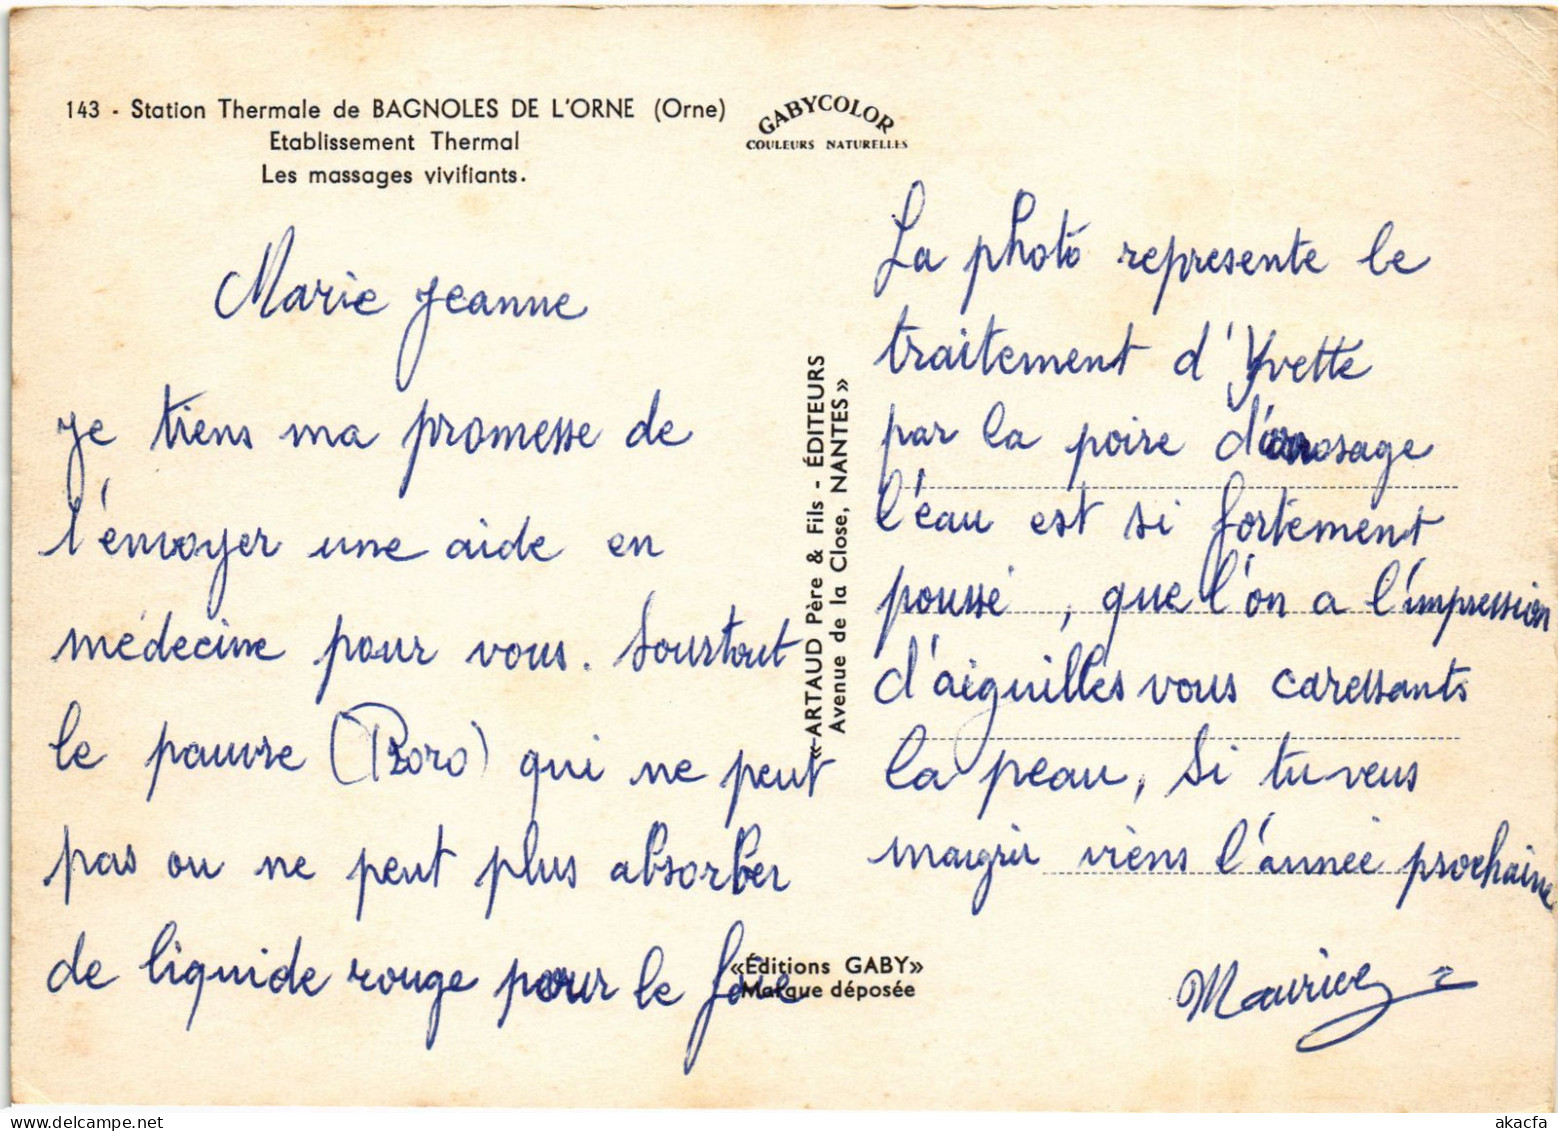 143 - Station Thermale de BAGNOLES DE L'ORNE (Orne)
Etablissement Thermal
Les massages vivifiants.
GABYCOLOR
COULEURS NATURELLES
Marie Jeanne
Je tiens ma promesse de
t'envoyer une aide en
médecine pour vous. Sourtout
le pauvre (Roro) qui ne peut
pas ou ne peut plus absorber
de liquide rouge pour le foie
«ARTAUD Père & Fils - ÉDITEURS
Avenue de la Close, NANTES»
«Éditions GABY»
Marque déposée
La photo represente le
traitement d'Yvette
par la poire d'arrosage
l'eau est si fortement
poussé, que l'on a l'impression
d'aiguilles vous caressants
la peau, Si tu veus
maigrir viens l'année prochaine
Maurice
akacfa
www.delcampe.net